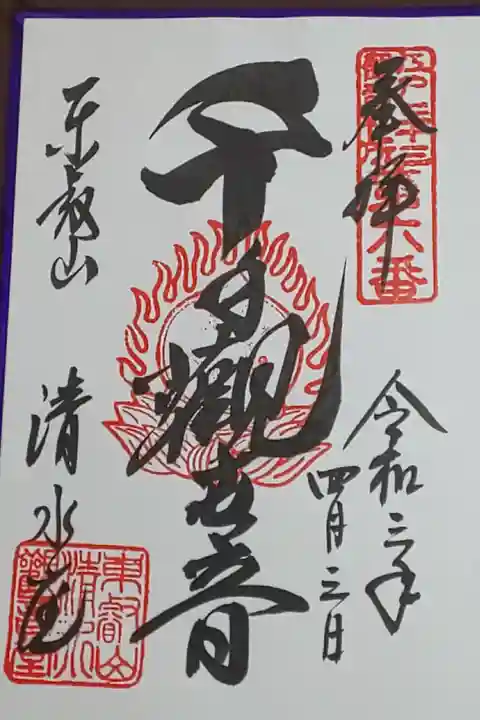 奉拝
第六番
令和三年
四月三日
千手觀世音
東叡山
清水堂
東叡山
清水
觀音堂